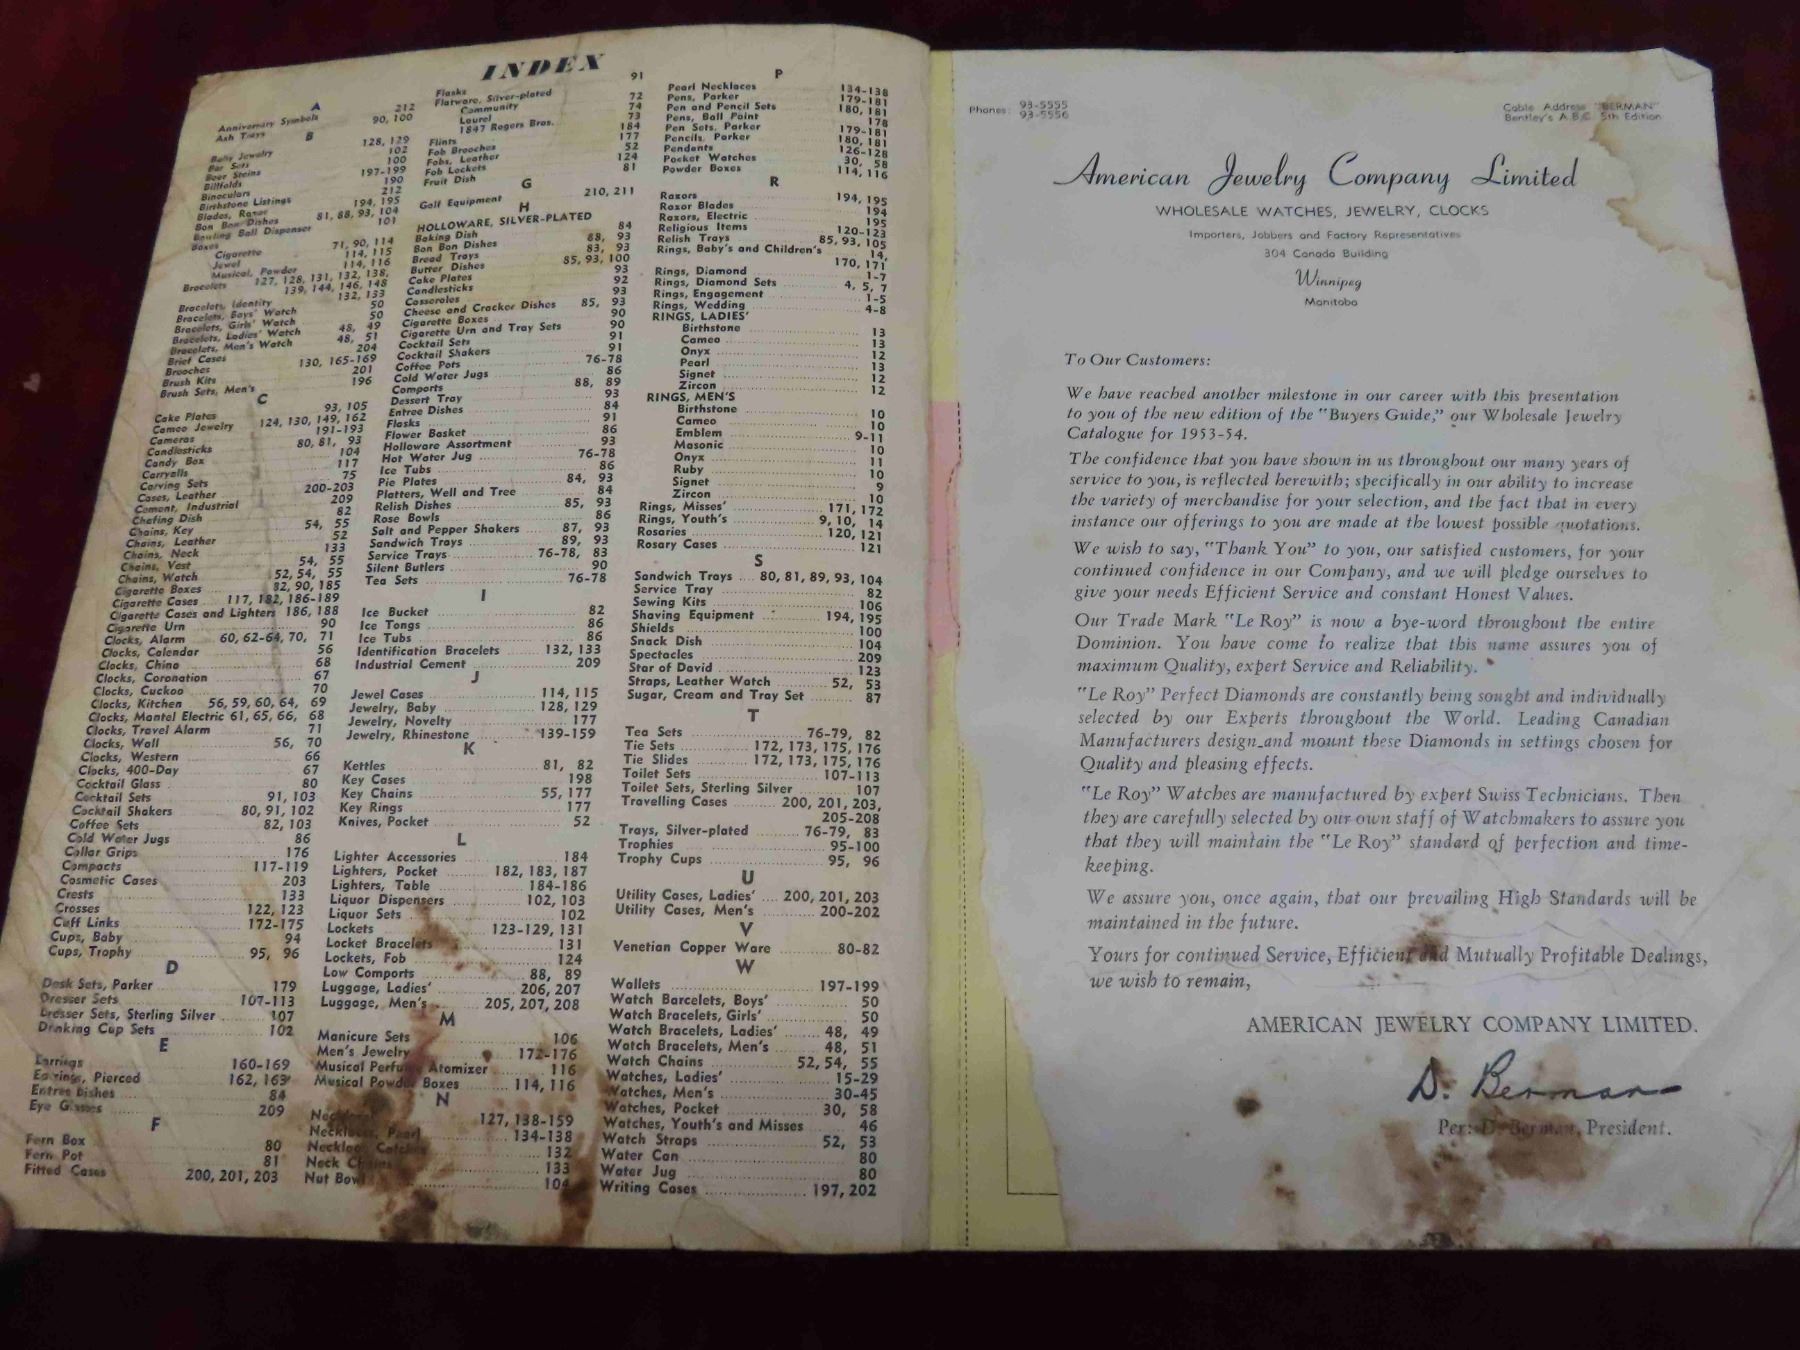 INDEX
A
Anniversary Symbols 212
Ash Trays 90, 100
B
Baby Jewelry 128, 129
Bar Sets 102
Beer Steins 100
Billfolds 197-199
Binoculars 190
Birthstone Listings 212
Blades, Razor 194, 195
Bon Bon Dishes 81, 88, 93, 104
Bowling Ball Dispenser 101
Boxes
Cigarette 71, 90, 114
Jewel 114, 115
Musical, Powder 114, 116
Bracelets 127, 128, 131, 132, 138,
139, 144, 146, 148
Bracelets, Identity 132, 133
Bracelets, Boys' Watch 50
Bracelets, Girls' Watch 50
Bracelets, Ladies' Watch 48, 49
Bracelets, Men's Watch 48, 51
Brief Cases 204
Brooches 130, 165-169
Brush Kits 201
Brush Sets, Men's 196
C
Cake Plates 93, 105
Cameo Jewelry 124, 130, 149, 162
Cameras 191-193
Candlesticks 80, 81, 93
Candy Box 104
Carryalls 117
Carving Sets 75
Cases, Leather 200-203
Cement, Industrial 209
Chafing Dish 82
Chains, Key 54, 55
Chains, Leather 52
Chains, Neck 133
Chains, Vest 54, 55
Chains, Watch 52, 54, 55
Cigarette Boxes 82, 90, 185
Cigarette Cases 117, 182, 186-189
Cigarette Cases and Lighters 186, 188
Cigarette Urn 90
Clocks, Alarm 60, 62-64, 70, 71
Clocks, Calendar 56
Clocks, China 68
Clocks, Coronation 67
Clocks, Cuckoo 70
Clocks, Kitchen 56, 59, 60, 64, 69
Clocks, Mantel Electric 61, 65, 66, 68
Clocks, Travel Alarm 71
Clocks, Wall 56, 70
Clocks, Western 66
Clocks, 400-Day 67
Cocktail Glass 80
Cocktail Sets 91, 103
Cocktail Shakers 80, 91, 102
Coffee Sets 82, 103
Cold Water Jugs 86
Collar Grips 176
Compacts 117-119
Cosmetic Cases 203
Crests 133
Crosses 122, 123
Cuff Links 172-175
Cups, Baby 94
Cups, Trophy 95, 96
D
Desk Sets, Parker 179
Dresser Sets 107-113
Dresser Sets, Sterling Silver 107
Drinking Cup Sets 102
E
Earrings 160-169
Earrings, Pierced 162, 163
Entree Dishes 84
Eye Glasses 209
F
Fern Box 80
Fern Pot 81
Fitted Cases 200, 201, 203
Flasks 91
Flatware, Silver-plated
Community 72
Laurel 74
1847 Rogers Bros. 73
Flints 184
Fob Brooches 177
Fobs, Leather 52
Fob Lockets 124
Fruit Dish 81
G
Golf Equipment 210, 211
H
HOLLOWARE, SILVER-PLATED
Baking Dish 84
Bon Bon Dishes 88, 93
Bread Trays 83, 93
Butter Dishes 85, 93, 100
Cake Plates 93
Candlesticks 92
Casseroles 93
Cheese and Cracker Dishes 85, 93
Cigarette Boxes 90
Cigarette Urn and Tray Sets 90
Cocktail Sets 91
Cocktail Shakers 91
Coffee Pots 76-78
Cold Water Jugs 86
Comports 88, 89
Dessert Tray 93
Entree Dishes 84
Flasks 91
Flower Basket 86
Holloware Assortment 93
Hot Water Jug 76-78
Ice Tubs 86
Pie Plates 84, 93
Platters, Well and Tree 84
Relish Dishes 85, 93
Rose Bowls 86
Salt and Pepper Shakers 87, 93
Sandwich Trays 89, 93
Service Trays 76-78, 83
Silent Butlers 90
Tea Sets 76-78
I
Ice Bucket 82
Ice Tongs 86
Ice Tubs 86
Identification Bracelets 132, 133
Industrial Cement 209
J
Jewel Cases 114, 115
Jewelry, Baby 128, 129
Jewelry, Novelty 177
Jewelry, Rhinestone 139-159
K
Kettles 81, 82
Key Cases 198
Key Chains 55, 177
Key Rings 177
Knives, Pocket 52
L
Lighter Accessories 184
Lighters, Pocket 182, 183, 187
Lighters, Table 184-186
Liquor Dispensers 102, 103
Liquor Sets 102
Lockets 123-129, 131
Locket Bracelets 131
Lockets, Fob 124
Low Comports 88, 89
Luggage, Ladies' 206, 207
Luggage, Men's 205, 207, 208
M
Manicure Sets 106
Men's Jewelry 172-176
Musical Perfume Atomizer 116
Musical Powder Boxes 114, 116
N
Necklaces 127, 138-159
Necklaces, Pearl 134-138
Necklace Catches 132
Neck Chains 133
Nut Bowl 104
P
Pearl Necklaces 134-138
Pens, Parker 179-181
Pen and Pencil Sets 180, 181
Pens, Ball Point 178
Pen Sets, Parker 179-181
Pencils, Parker 180, 181
Pendants 126-128
Pocket Watches 30, 58
Powder Boxes 114, 116
R
Razors 194, 195
Razor Blades 194
Razors, Electric 195
Religious Items 120-123
Relish Trays 85, 93, 105
Rings, Baby's and Children's 14,
170, 171
Rings, Diamond 1-7
Rings, Diamond Sets 4, 5, 7
Rings, Engagement 1-5
Rings, Wedding 4-8
RINGS, LADIES'
Birthstone 13
Cameo 13
Onyx 12
Pearl 13
Signet 12
Zircon 12
RINGS, MEN'S
Birthstone 10
Cameo 10
Emblem 9-11
Masonic 10
Onyx 11
Ruby 10
Signet 9
Zircon 10
Rings, Misses' 171, 172
Rings, Youth's 9, 10, 14
Rosaries 120, 121
Rosary Cases 121
S
Sandwich Trays 80, 81, 89, 93, 104
Service Tray 82
Sewing Kits 106
Shaving Equipment 194, 195
Shields 100
Snack Dish 104
Spectacles 209
Star of David 123
Straps, Leather Watch 52, 53
Sugar, Cream and Tray Set 87
T
Tea Sets 76-79, 82
Tie Sets 172, 173, 175, 176
Tie Slides 172, 173, 175, 176
Toilet Sets 107-113
Toilet Sets, Sterling Silver 107
Travelling Cases 200, 201, 203,
205-208
Trays, Silver-plated 76-79, 83
Trophies 95-100
Trophy Cups 95, 96
U
Utility Cases, Ladies' 200, 201, 203
Utility Cases, Men's 200-202
V
Venetian Copper Ware 80-82
W
Wallets 197-199
Watch Barcelets, Boys' 50
Watch Bracelets, Girls' 50
Watch Bracelets, Ladies' 48, 49
Watch Bracelets, Men's 48, 51
Watch Chains 52, 54, 55
Watches, Ladies' 15-29
Watches, Men's 30-45
Watches, Pocket 30, 58
Watches, Youth's and Misses 46
Watch Straps 52, 53
Water Can 80
Water Jug 80
Writing Cases 197, 202
Phones: 93-5555
93-5556
Cable Address "BERMAN"
Bentley's A.B.C. 5th Edition
American Jewelry Company Limited
WHOLESALE WATCHES, JEWELRY, CLOCKS
Importers, Jobbers and Factory Representatives
304 Canada Building
Winnipeg
Manitoba
To Our Customers:
We have reached another milestone in our career with this presentation
to you of the new edition of the "Buyers Guide," our Wholesale Jewelry
Catalogue for 1953-54.
The confidence that you have shown in us throughout our many years of
service to you, is reflected herewith; specifically in our ability to increase
the variety of merchandise for your selection, and the fact that in every
instance our offerings to you are made at the lowest possible quotations.
We wish to say, "Thank You" to you, our satisfied customers, for your
continued confidence in our Company, and we will pledge ourselves to
give your needs Efficient Service and constant Honest Values.
Our Trade Mark "Le Roy" is now a bye-word throughout the entire
Dominion. You have come to realize that this name assures you of
maximum Quality, expert Service and Reliability.
"Le Roy" Perfect Diamonds are constantly being sought and individually
selected by our Experts throughout the World. Leading Canadian
Manufacturers design and mount these Diamonds in settings chosen for
Quality and pleasing effects.
"Le Roy" Watches are manufactured by expert Swiss Technicians. Then
they are carefully selected by our own staff of Watchmakers to assure you
that they will maintain the "Le Roy" standard of perfection and time-
keeping.
We assure you, once again, that our prevailing High Standards will be
maintained in the future.
Yours for continued Service, Efficient and Mutually Profitable Dealings,
we wish to remain,
AMERICAN JEWELRY COMPANY LIMITED.
D. Berman
Per: D. Berman, President.